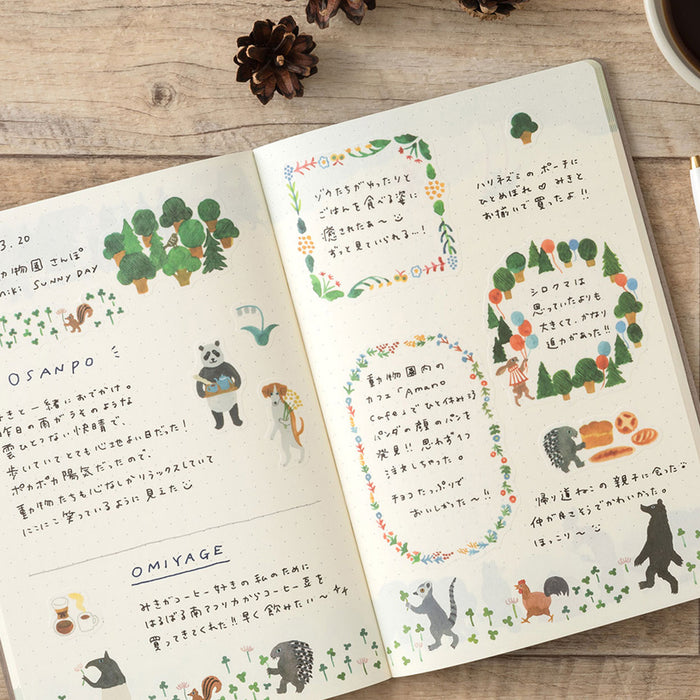 3.20
動物園 さんぽ
miki SUNNY DAY
OSANPO
みきと一緒におでかけ。
昨日の雨がうそのような
雲ひとつない快晴で、
歩いていてとても心地よい日だった!
ポカポカ陽気だったので、
動物たちも心なしかリラックスしていて
にこにこ笑っているように見えた
OMIYAGE
みきがコーヒー好きの私のために
はるばる南アフリカからコーヒー豆を
買ってきてくれた!!早く飲みたい〜
ゾウたちがゆったりと
ごはんを食べる姿に
癒されたあ〜
ずっと見ていられる...!
動物園内の
カフェ「Amano
cafe」でひと休み
パンダの顔のパンを
発見!! 思わず1つ
注文しちゃった。
チョコたっぷりで
おいしかった〜!!
ハリネズミのポーチに
ひとめぼれ♡ みきと
お揃いで買ったよ!!
シロクマは
思っていたよりも
大きくて、かなり
迫力があった!!
帰り道ねこの親子に会った
仲が良さそうでかわいかった。
ほっこり〜